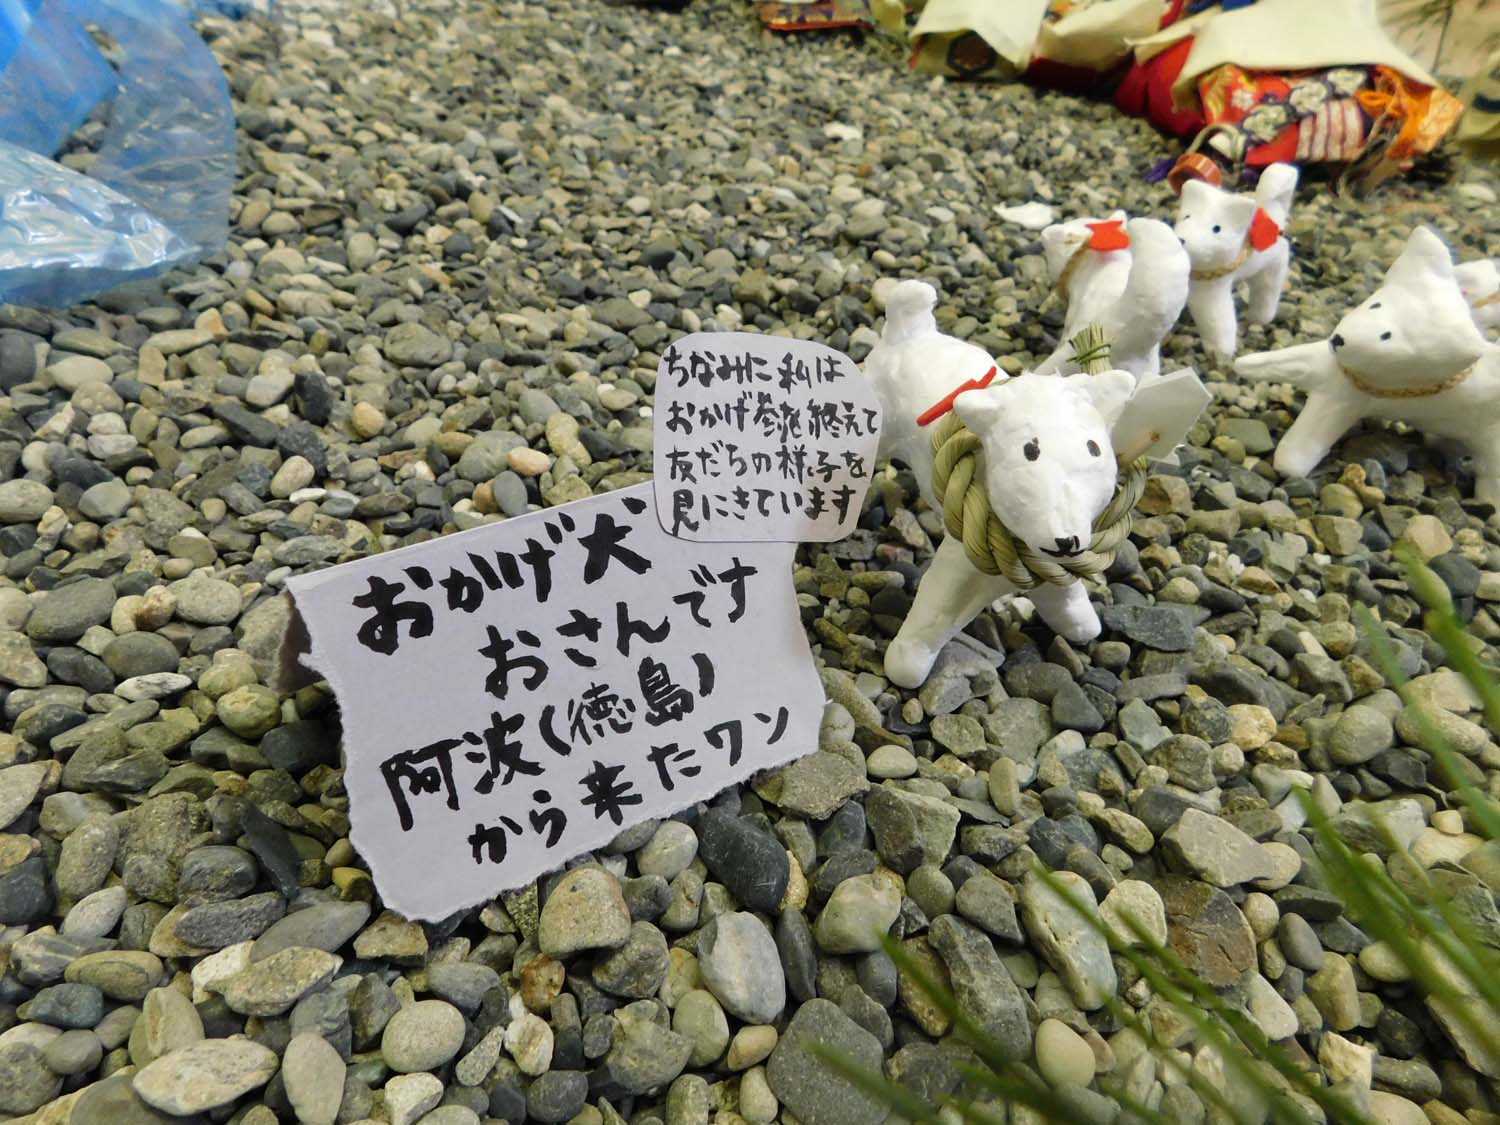 ちなみに私は
おかげ参を終えて
友だちの様子を
見にきています
おかげ犬
おさんです
阿波(徳島)
から来たワン